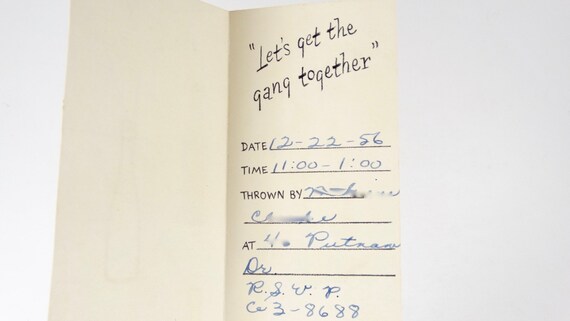 "Let's get the
gang together"
DATE 12-22-56
TIME 11:00-1:00
THROWN BY
AT Putnam
Dr.
R.S.V.P.
Ce 3-8688